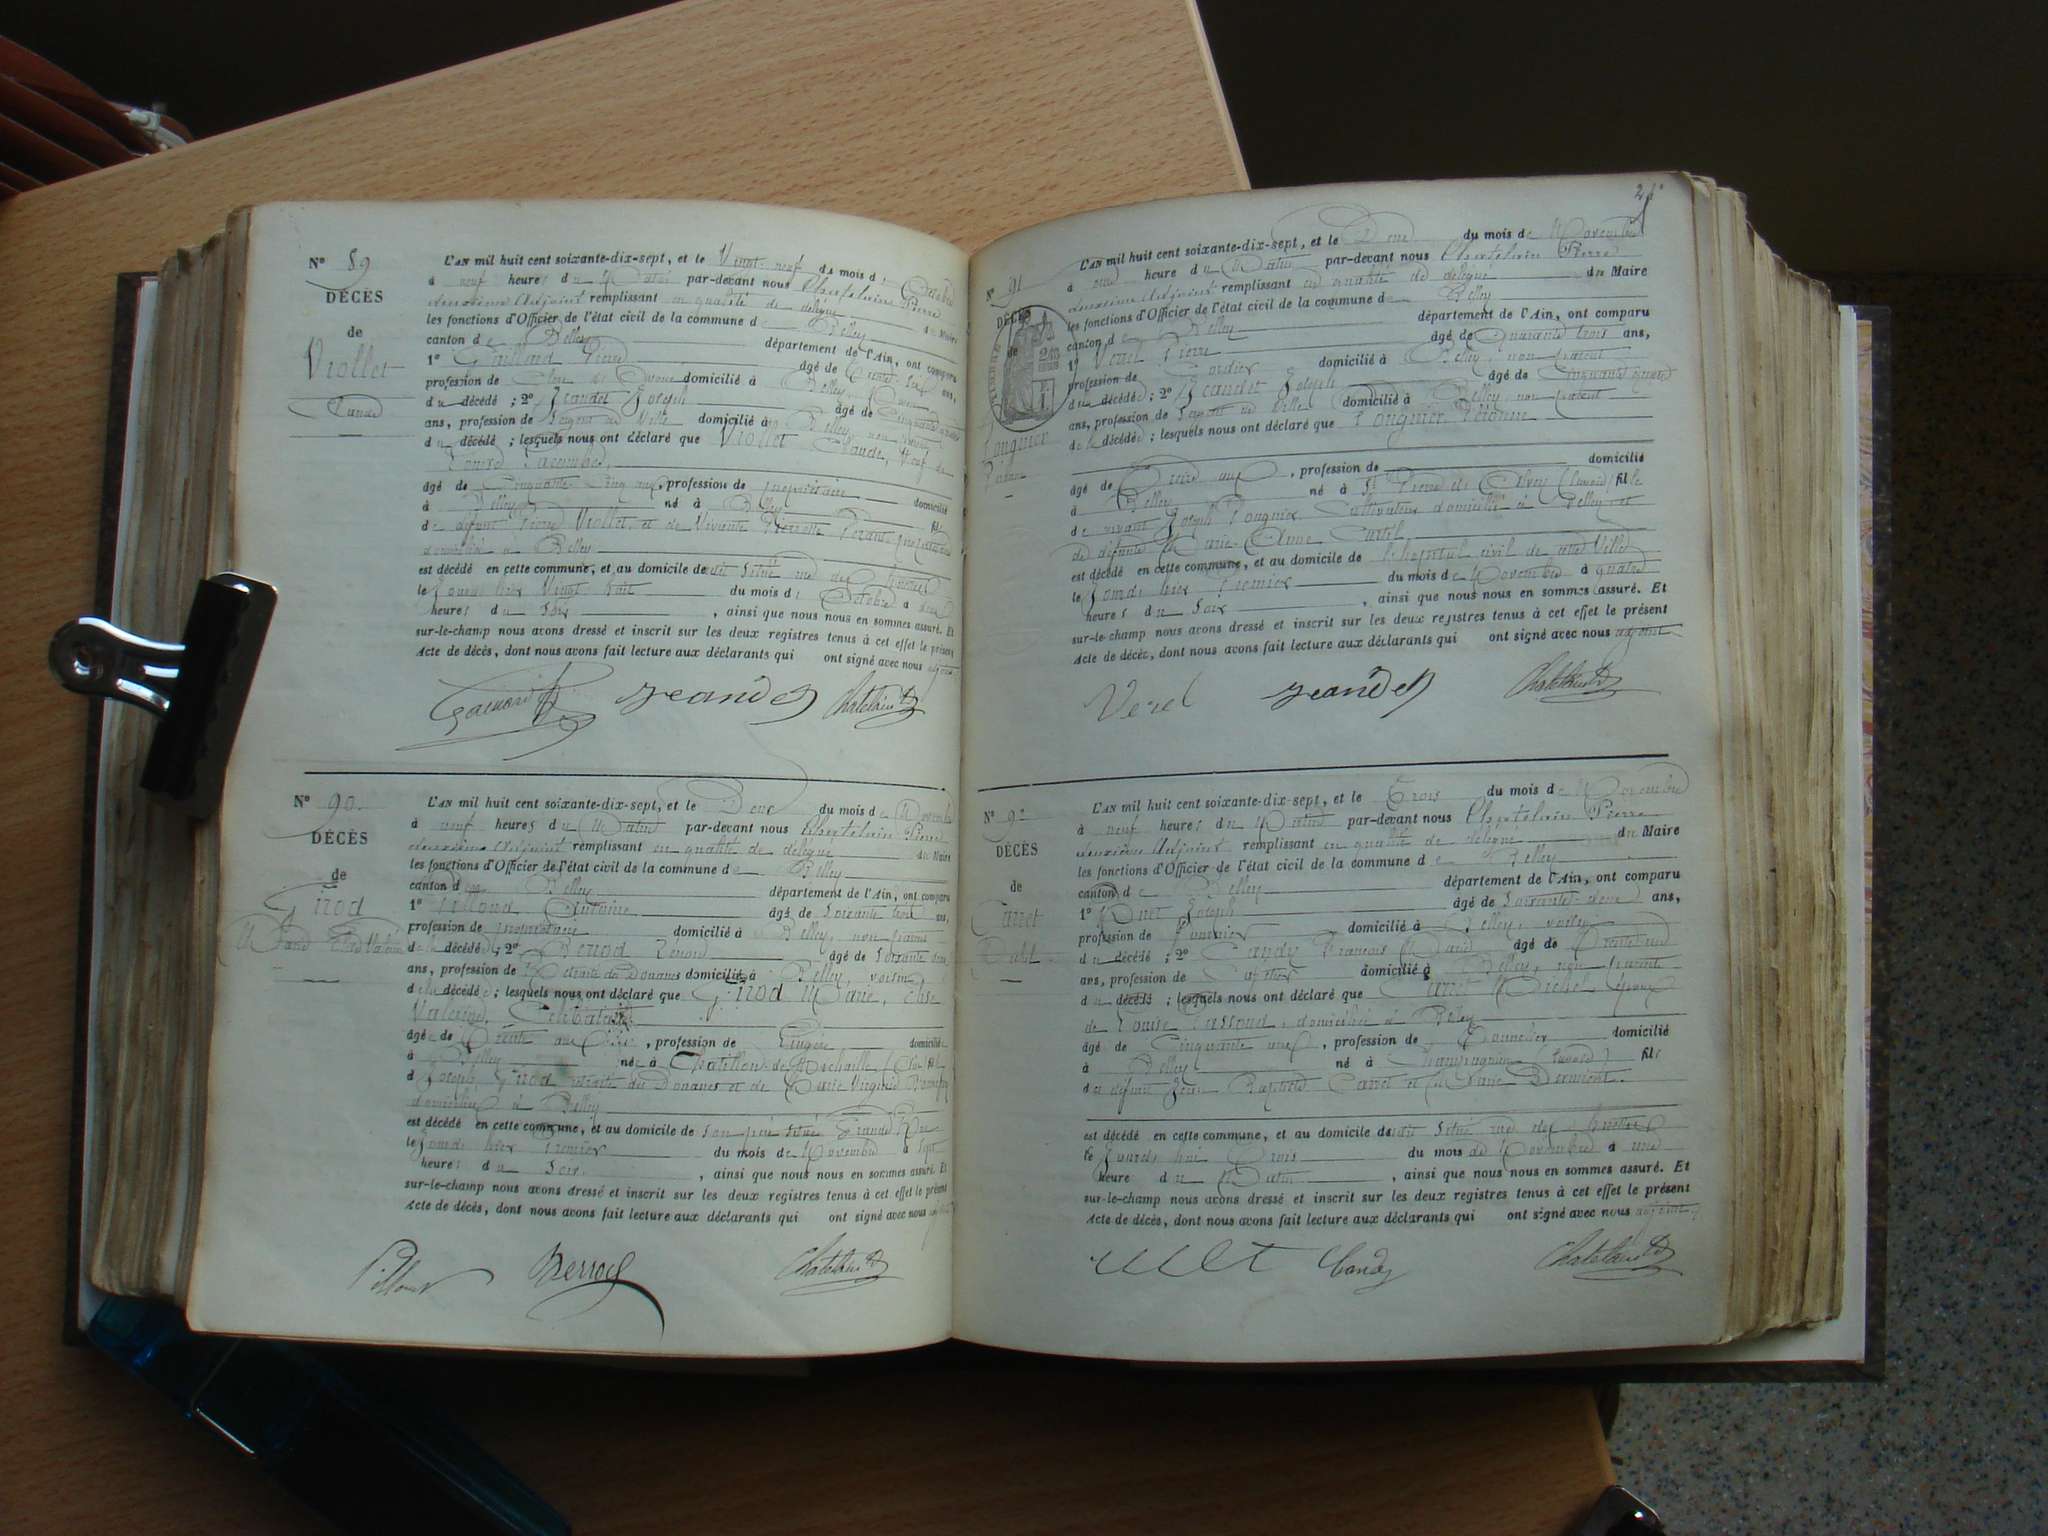 N° 89
DÉCÈS
de
Viollet
Claude
L'AN mil huit cent soixante-dix-sept, et le Vingt-neuf du mois d' Octobre
à neuf heures du Matin par-devant nous Chatelain Pierre
deuxième Adjoint remplissant en qualité de délégué du Maire
les fonctions d'Officier de l'état civil de la commune de Belley
canton de Belley département de l'Ain, ont comparu
1° Pierre âgé de trente six ans,
profession de Clerc domicilié à Belley,
du décédé ; 2° Jeandet Joseph âgé de Cinquante
ans, profession de Sergent de Ville domicilié à Belley, non parent
du décédé ; lesquels nous ont déclaré que Viollet Claude, Veuf de
âgé de Cinquante cinq ans, profession de propriétaire domicilié
à Belley né à Belley fils
de défunt Pierre Viollet et de Vivante
domiciliée à Belley
est décédé en cette commune, et au domicile de
le Jourd. hier Vingt huit du mois d' Octobre à
heures du Soir , ainsi que nous nous en sommes assuré. Et
sur-le-champ nous avons dressé et inscrit sur les deux registres tenus à cet effet le présent
Acte de décès, dont nous avons fait lecture aux déclarants qui ont signé avec nous adjoint
Jeandet Chatelain
N° 90
DÉCÈS
de
Girod
L'AN mil huit cent soixante-dix-sept, et le Deux du mois de Novembre
à neuf heures du Matin par-devant nous Chatelain Pierre
deuxième Adjoint remplissant en qualité de délégué du Maire
les fonctions d'Officier de l'état civil de la commune de Belley
canton de Belley département de l'Ain, ont comparu
1° Antoine âgé de soixante trois ans,
profession de propriétaire domicilié à Belley, non parent
de la décédée ; 2° âgé de soixante
ans, profession de Retraité des Douanes domicilié à Belley, voisin
de la décédée ; lesquels nous ont déclaré que Girod Marie, Elise
Célibataire
âgée de Trente ans , profession de Lingère domiciliée
à Belley née à Chatillon de Michaille fille
de Joseph Girod retraité des Douanes et de Marie Virginie
domiciliés à Belley
est décédé en cette commune, et au domicile de son père situé Grande Rue
le Jourd. hier premier du mois de Novembre à sept
heures du Soir , ainsi que nous nous en sommes assuré. Et
sur-le-champ nous avons dressé et inscrit sur les deux registres tenus à cet effet le présent
Acte de décès, dont nous avons fait lecture aux déclarants qui ont signé avec nous
Chatelain
N° 91
DÉCÈS
de
Pougnier
L'AN mil huit cent soixante-dix-sept, et le Deux du mois de Novembre
à onze heure du Matin par-devant nous Chatelain Pierre
deuxième Adjoint remplissant en qualité de délégué du Maire
les fonctions d'Officier de l'état civil de la commune de Belley
canton de Belley département de l'Ain, ont comparu
1° Verel Pierre âgé de Quarante trois ans,
profession de Cordier domicilié à Belley, non parent
du décédé ; 2° Jeandet Joseph âgé de Cinquante
ans, profession de Sergent de Ville domicilié à Belley, non parent
de la décédée ; lesquels nous ont déclaré que Pougnier Péronne
âgé de Treize ans , profession de domicilié
à Belley né à St Pierre de (Savoie) fille
de vivant Joseph Pougnier Cultivateur domicilié à Belley et
de défunte Marie Anne
est décédé en cette commune, et au domicile de l'hopital civil de cette Ville
le Jourd. hier Premier du mois de Novembre à quatre
heures du Soir , ainsi que nous nous en sommes assuré. Et
sur-le-champ nous avons dressé et inscrit sur les deux registres tenus à cet effet le présent
Acte de décès, dont nous avons fait lecture aux déclarants qui ont signé avec nous adjoint
Verel Jeandet Chatelain
N° 92
DÉCÈS
de
Carret
Michel
L'AN mil huit cent soixante-dix-sept, et le Trois du mois de Novembre
à neuf heures du Matin par-devant nous Chatelain Pierre
deuxième Adjoint remplissant en qualité de délégué du Maire
les fonctions d'Officier de l'état civil de la commune de Belley
canton de Belley département de l'Ain, ont comparu
1° Joseph âgé de soixante-deux ans,
profession de domicilié à Belley, voisin
du décédé ; 2° Candy François Marie âgé de Trente
ans, profession de domicilié à Belley, non parent
du décédé ; lesquels nous ont déclaré que Carret Michel, époux
de Louise domiciliée à Belley
âgé de Cinquante neuf , profession de Tonnelier domicilié
à Belley né à Champagneux (Savoie) fils
du défunt Jean Baptiste Carret et de Marie
est décédé en cette commune, et au domicile de
le Jourd. hui Trois du mois de Novembre à une
heure du Matin , ainsi que nous nous en sommes assuré. Et
sur-le-champ nous avons dressé et inscrit sur les deux registres tenus à cet effet le présent
Acte de décès, dont nous avons fait lecture aux déclarants qui ont signé avec nous adjoint
Candy Chatelain